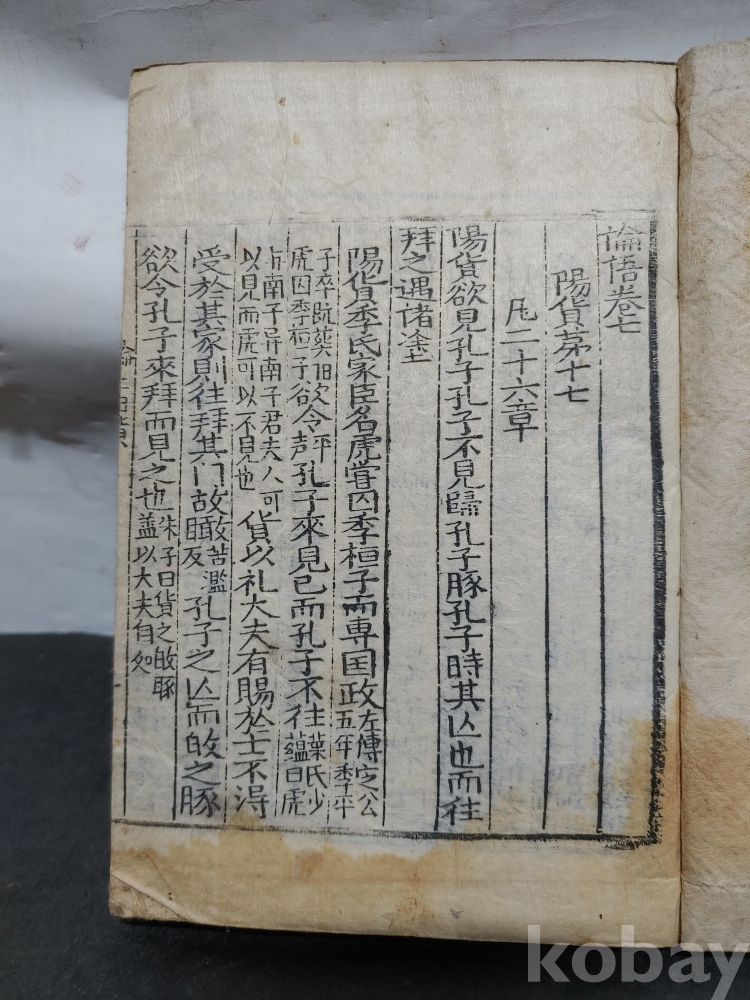 論語卷七
陽貨苐十七
凡二十六章
陽貨欲見孔子孔子不見歸孔子豚孔子時其亾也而往
拜之遇諸塗
陽貨季氏家臣名虎嘗囚季桓子而專囯政左傳定公五年季平
子卒旣葬虎囚季桓子欲令平声孔子來見己而孔子不往葉氏少蘊曰虎
南子異南子君夫人可以見而虎可以不見也貨以礼大夫有賜於士不淂
受於其家則往拜其门故瞰苦濫反孔子之亾而皈之豚
欲令孔子來拜而見之也朱子曰貨之皈豚蓋以大夫自処
kobay